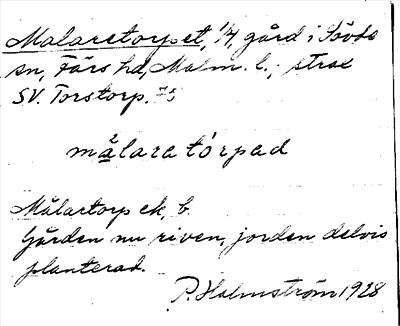 Målaretorpet, 1/4, gård i Sövde
sn, Färs hd, Malm. l.; strax
SV. Torstorp.
målaretórpad
Målartorp ek, b.
Gården nu riven, jorden delvis
planterad.
P. Holmström 1928